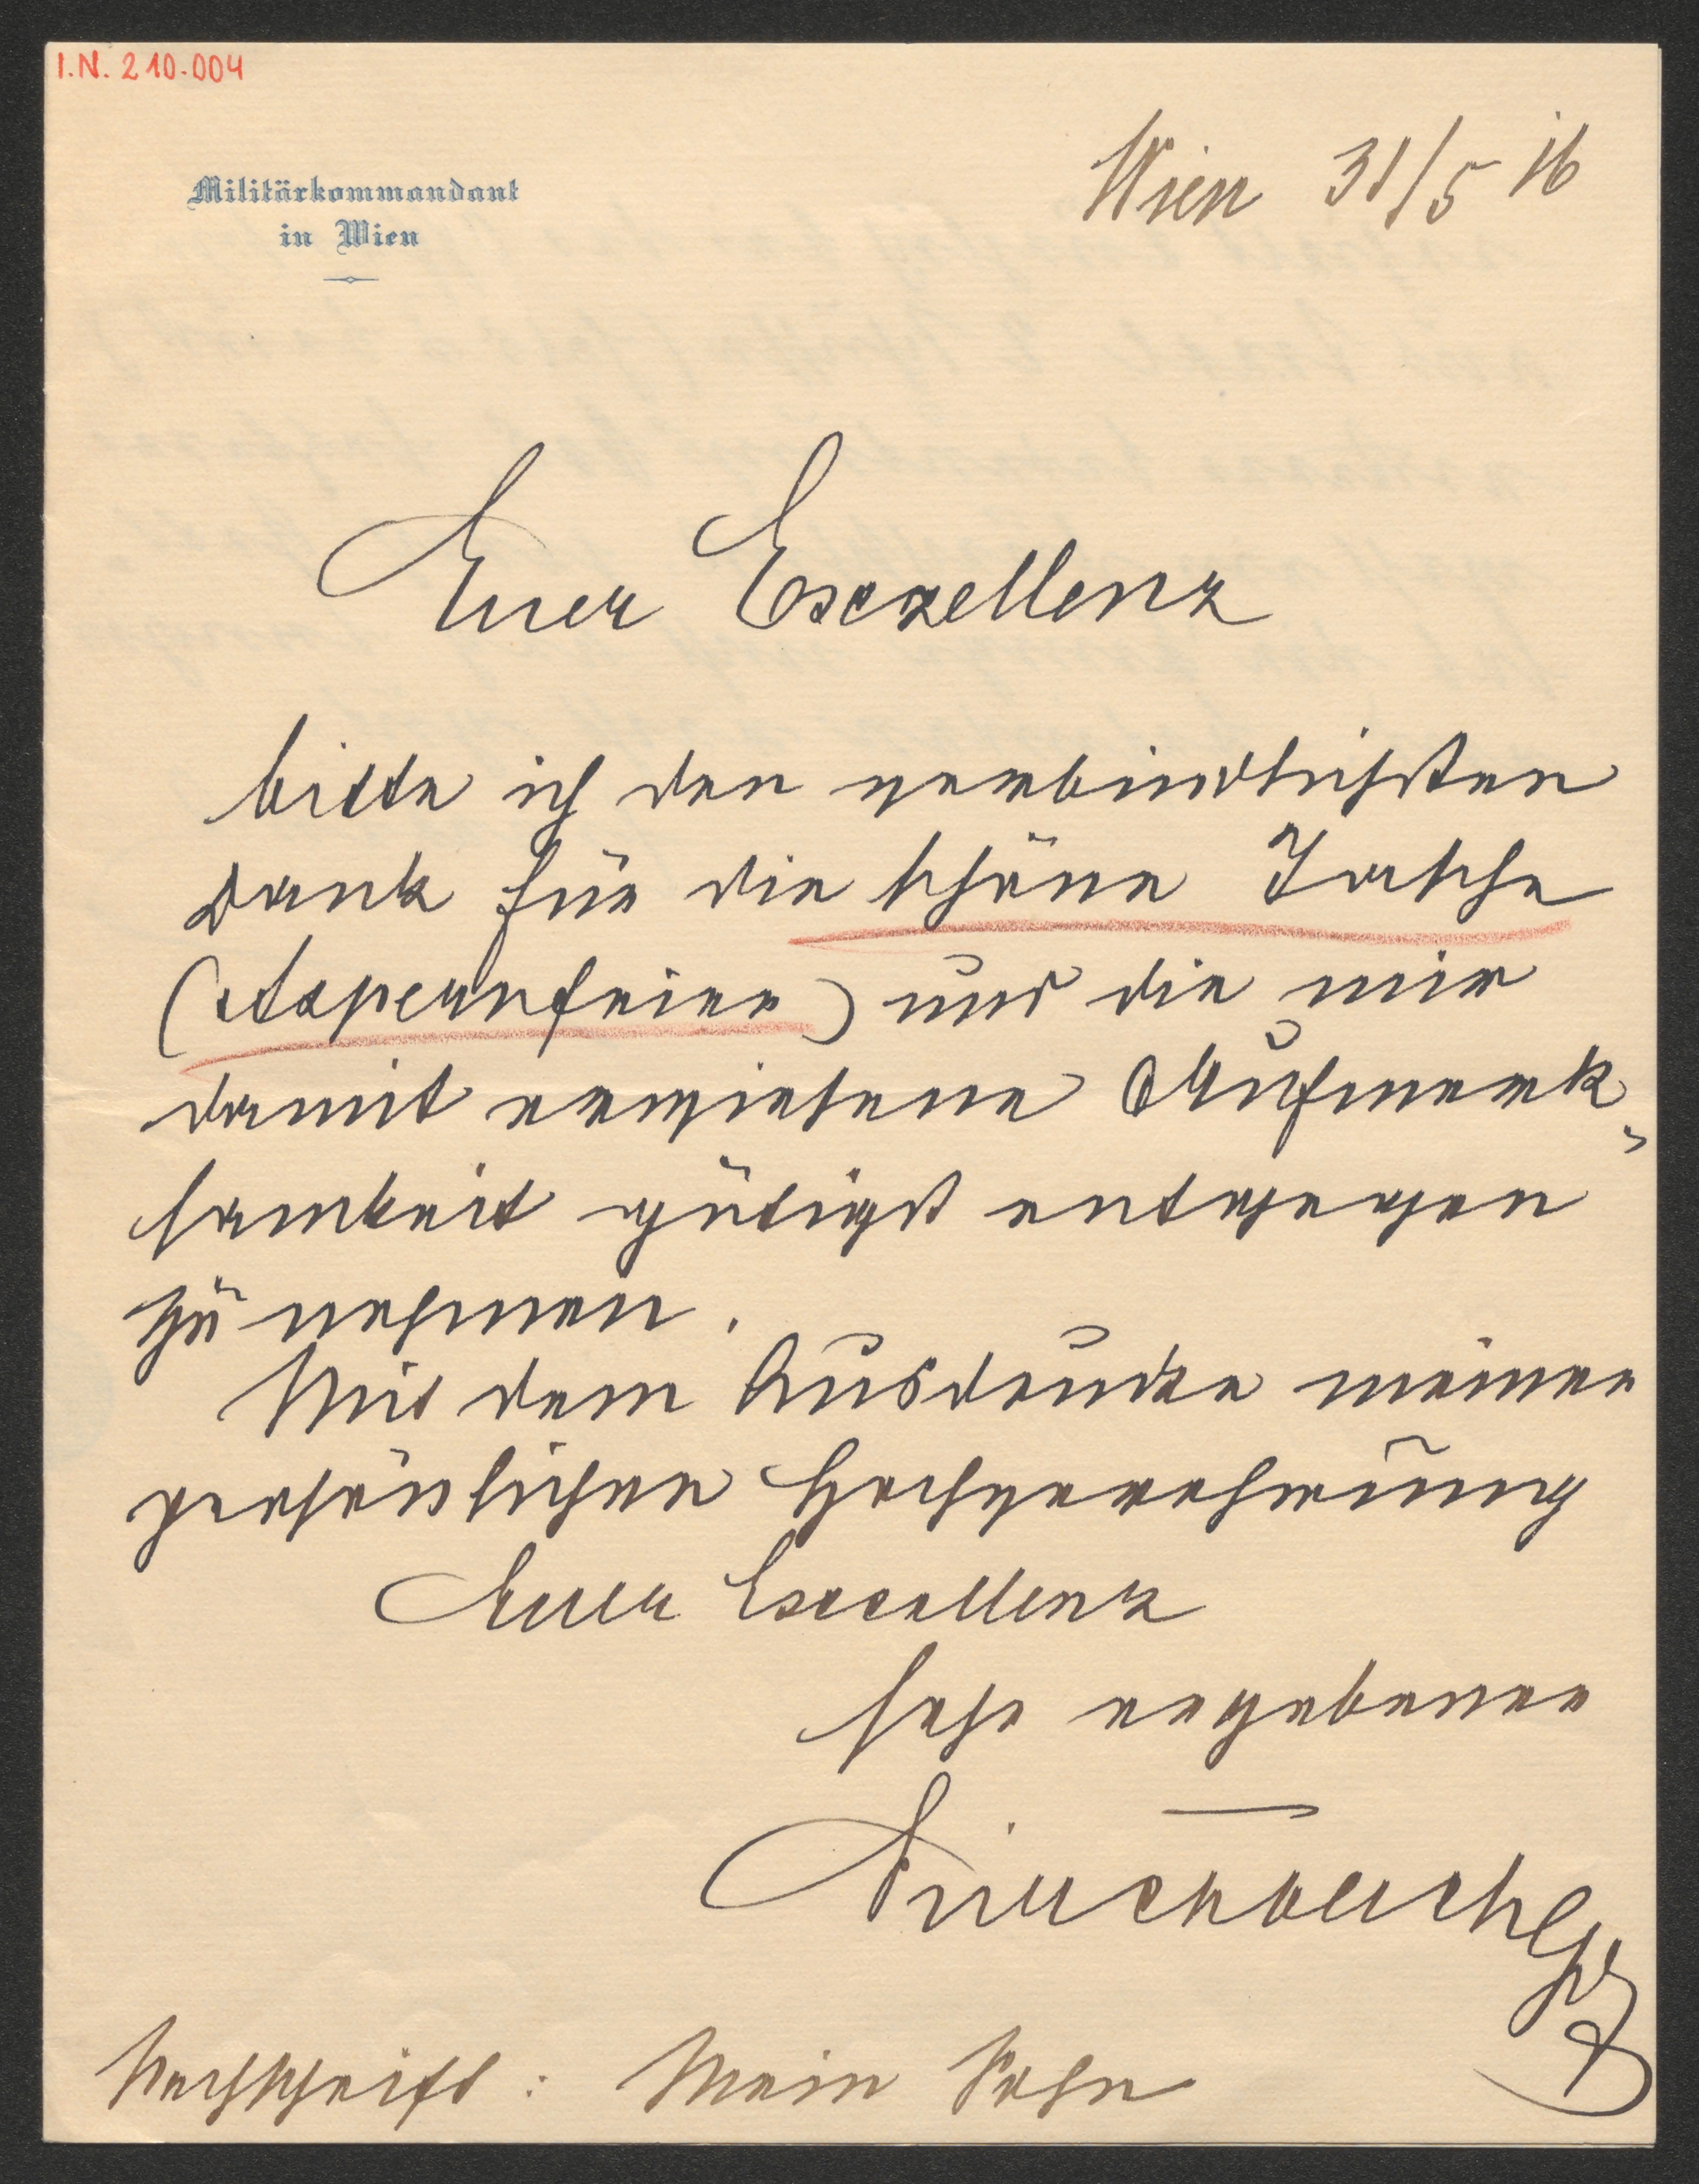 I.N. 210.004
Militärkommandant
in Wien
Wien 31/5 16
Euer Exzellenz
bitte ich den verbindlichsten
Dank für die schöne Tasche
(Aspernfeier) und die mir
damit erwiesene Aufmerk-
samkeit gütigst entgegen
zu nehmen.
Mit dem Ausdrucke meiner
persönlichen Hochverehrung
Euer Exzellenz
sehr ergebener
Nachschrift: Mein Sohn